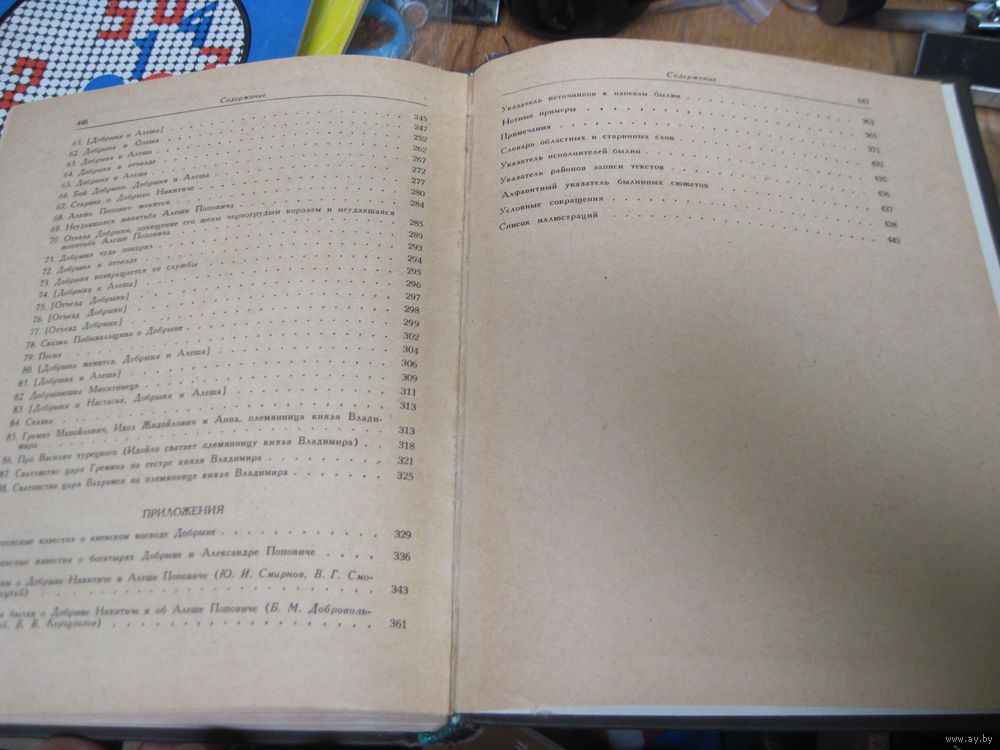 446
Содержание
61. [Добрыня и Алеша] 245
62. Добрыня и Олеша 247
63. Добрыня и Алеша 252
64. Добрыня в отъезде 262
65. Добрыня и Алеша 267
66. Бой Добрыни. Добрыня и Алеша 272
67. Старина о Добрыне Никитиче 277
68. Алеша Попович женится 280
69. Неудавшаяся женитьба Алеши Поповича 284
70. Отъезд Добрыни, похищение его жены черногрудым королем и неудавшаяся
женитьба Алеши Поповича 285
71. Добрыня чудь покорил 289
72. Добрыня в отъезде 293
73. Добрыня возвращается со службы 294
74. [Добрыня и Алеша] 295
75. [Отъезд Добрыни] 296
76. [Отъезд Добрыни] 297
77. [Отъезд Добрыни] 298
78. Сказка. Побывальщина о Добрыне 299
79. Песня 302
80. [Добрыня женится, Добрыня и Алеша] 304
81. [Добрыня и Алеша] 306
82. Добрынюшка Микитинець 309
83. [Добрыня и Настасья, Добрыня и Алеша] 311
84. Сказка 313
85. Гремит Манойлович, Идол Жидойлович и Анна, племянница князя Влади-
мира 313
86. Про Василия турецкого (Идойло сватает племянницу князя Владимира) 318
87. Сватовство царя Гремина на сестре князя Владимира 321
88. Сватовство царя Вахрамея на племяннице князя Владимира 325
ПРИЛОЖЕНИЯ
известия о киевском воеводе Добрыне 329
известия о богатырях Добрыне и Александре Поповиче 336
о Добрыне Никитиче и Алеше Поповиче (Ю. И. Смирнов, В. Г. Смо-
343
былин о Добрыне Никитиче и об Алеше Поповиче (Б. М. Доброволь-
В. В. Коргузалов) 361
Содержание
447
Указатель источников к напевам былин 363
Нотные примеры 365
Примечания 371
Словарь областных и старинных слов 432
Указатель исполнителей былин 435
Указатель районов записи текстов 436
Алфавитный указатель былинных сюжетов 437
Условные сокращения 438
Список иллюстраций 442
www.ay.by